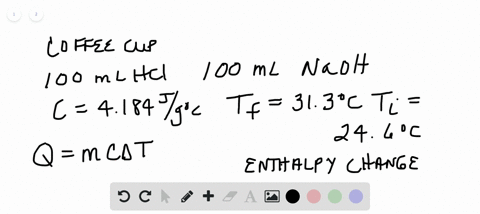 COFFEE CUP
100 mL HCl 100 mL NaOH
C = 4.184 J/g°C Tf = 31.3°C Ti =
24.6°C
Q = mCΔT
ENTHALPY CHANGE